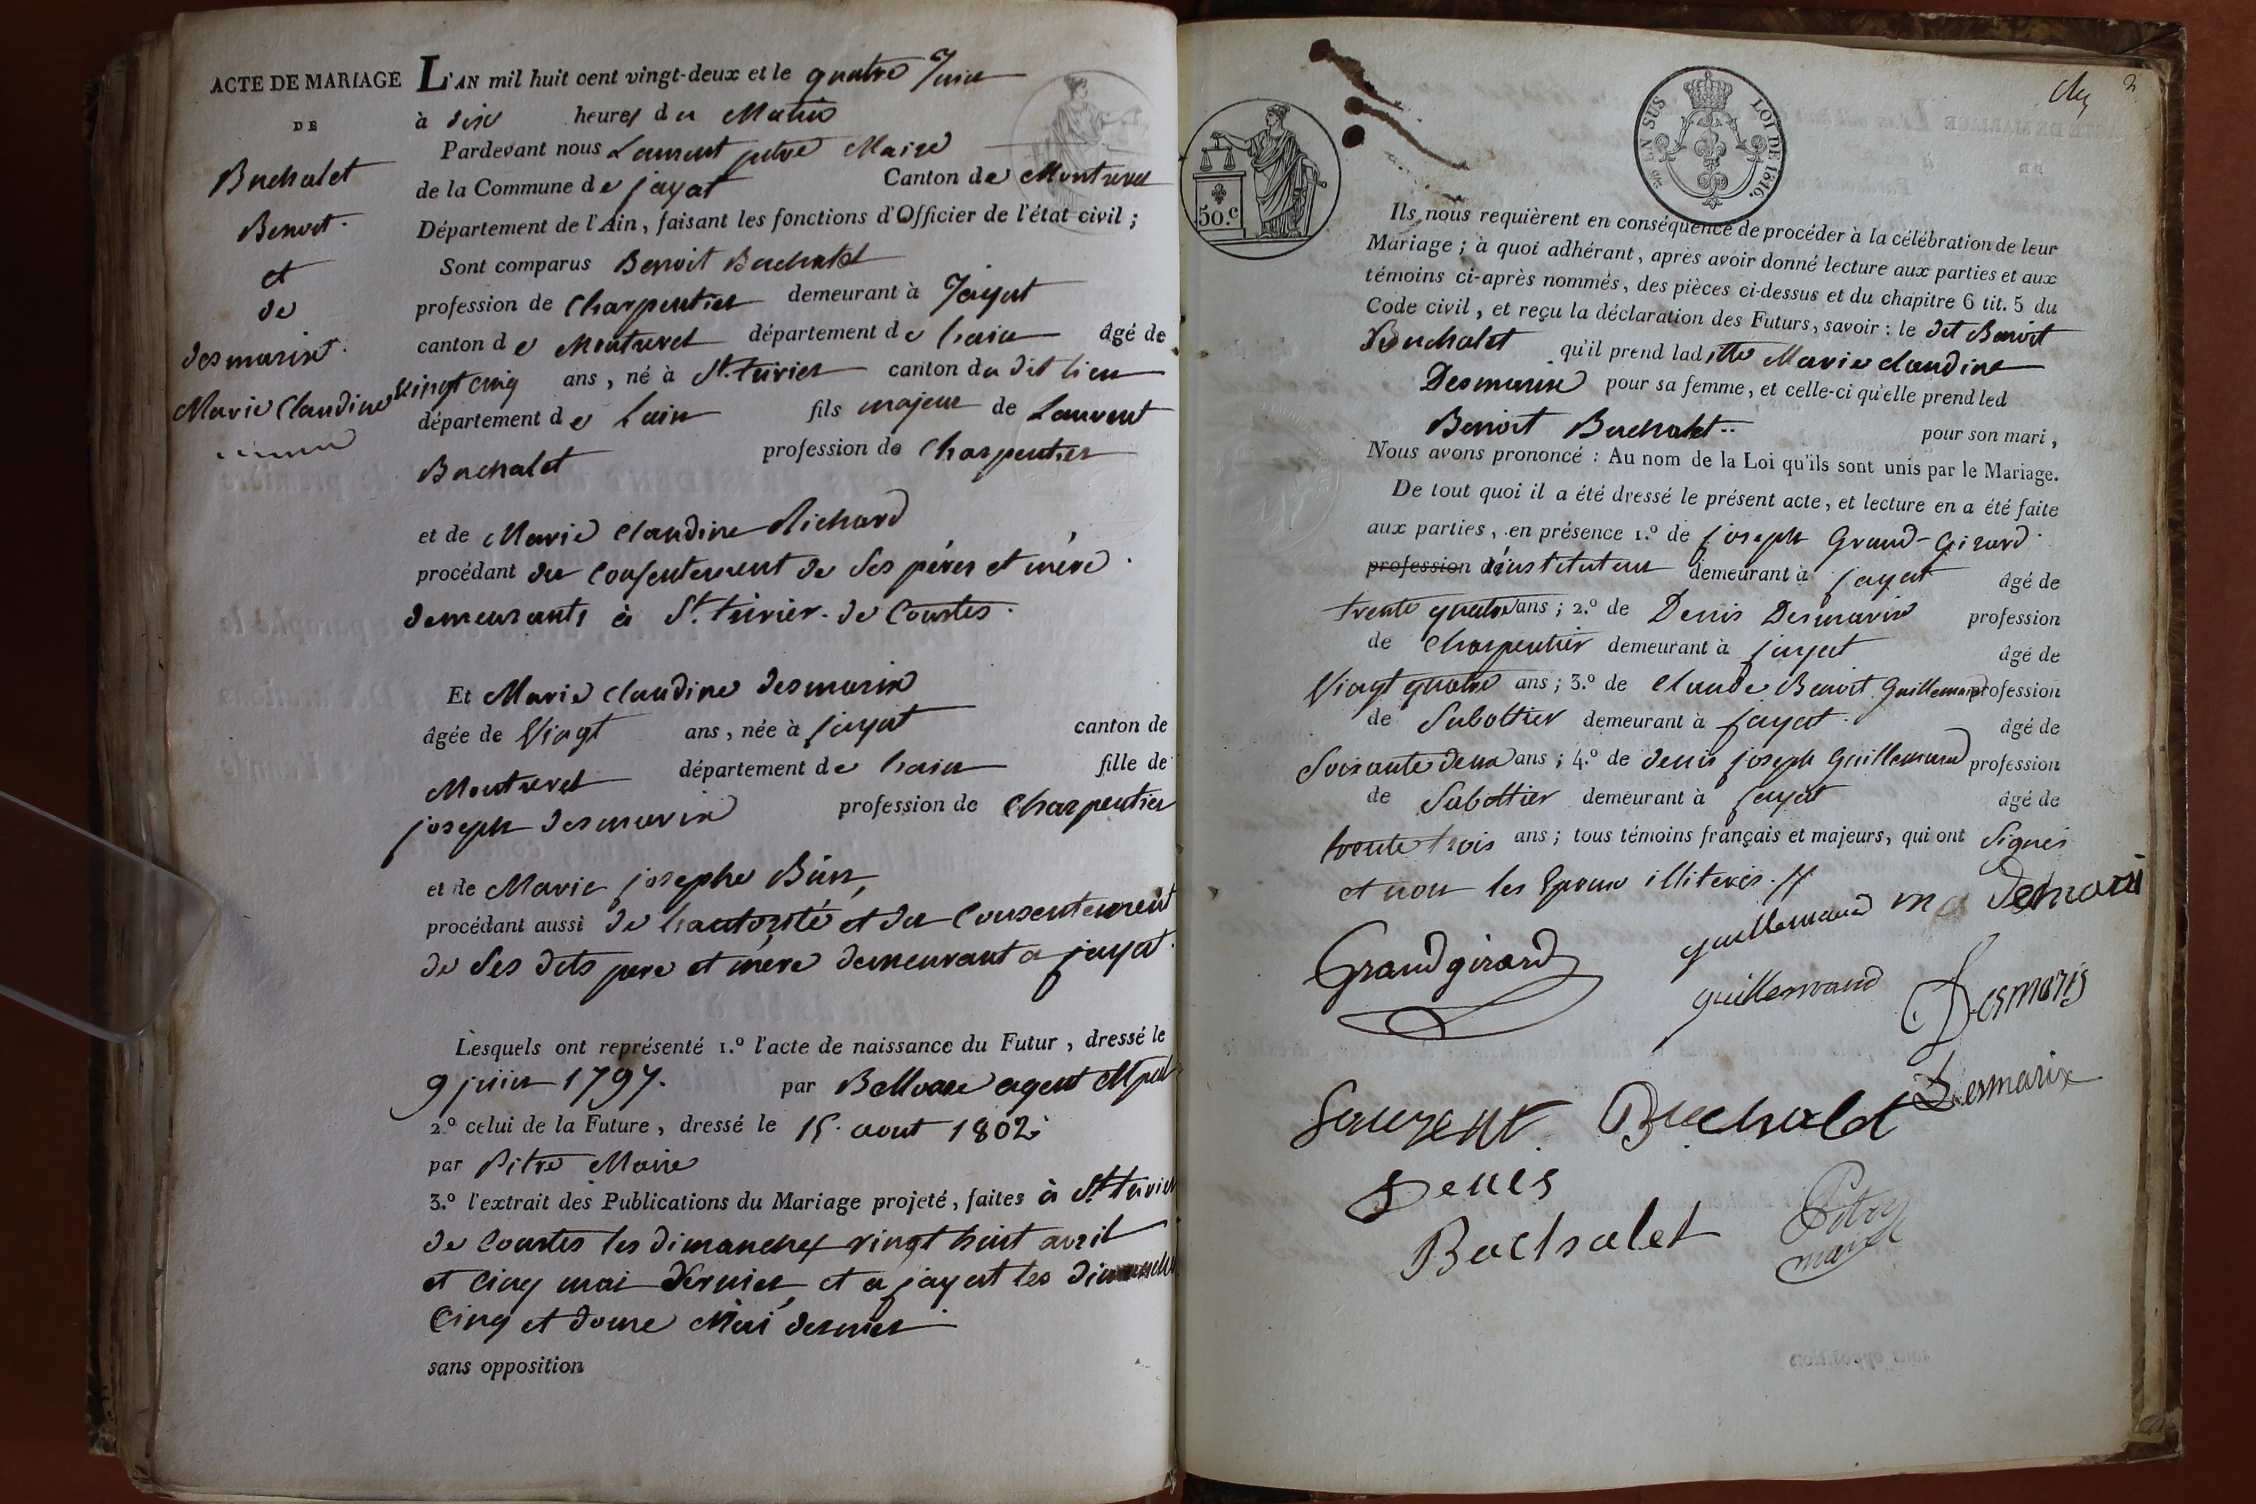 ACTE DE MARIAGE
DE
Buchalet
Benoit.
et
de
desmarix.
Marie Claudine
L'AN mil huit cent vingt-deux et le quatre Juin
à dix heures du Matin
Pardevant nous Laurent pitre Maire
de la Commune de jayat Canton de Montrevel
Département de l'Ain, faisant les fonctions d'Officier de l'état civil ;
Sont comparus Benoit Buchalet
profession de Charpentier demeurant à Jayat
canton de Montrevel département de lain âgé de
Vingt cinq ans, né à St. trivier canton du dit lieu
département de lain fils majeur de Laurent
Buchalet profession de Charpentier
et de Marie Claudine Richard
procédant du Consentement de Ses péres et mére.
demeurants à St. trivier. de Courtes.
Et Marie Claudine desmarix
âgée de Vingt ans, née à jayat canton de
Montrevel département de lain fille de
joseph desmarix profession de Charpentier
et de Marie josephe
procédant aussi de lautorité et du Consentement
de Ses dits pere et mére demeurant a jayat.
Lesquels ont représenté 1.º l'acte de naissance du Futur, dressé le
9 juin 1797. par agent
2.º celui de la Future, dressé le 15. aout 1802
par Pitre Maire
3.º l'extrait des Publications du Mariage projeté, faites à St. trivier
de Courtes les dimanches vingt huit avril
et cinq mai dernier et a jayat les dimanches
Cinq et douze Mai dernier
sans opposition
50.c
EN SUS
LOI DE 1816.
Ils nous requièrent en conséquence de procéder à la célébration de leur
Mariage ; à quoi adhérant, après avoir donné lecture aux parties et aux
témoins ci-après nommés, des pièces ci-dessus et du chapitre 6 tit. 5 du
Code civil, et reçu la déclaration des Futurs, savoir : le dit Benoit
Buchalet qu'il prend laditte Marie Claudine
Desmarix pour sa femme, et celle-ci qu'elle prend led
Benoit Buchalet.. pour son mari,
Nous avons prononcé : Au nom de la Loi qu'ils sont unis par le Mariage.
De tout quoi il a été dressé le présent acte, et lecture en a été faite
aux parties, en présence 1.º de joseph Grand-Girard.
profession d'instituteur demeurant à jayat âgé de
trente quatre ans ; 2.º de Denis Desmarix profession
de Charpentier demeurant à jayat âgé de
Vingt quatre ans ; 3.º de Claude Benoit Guillemaud profession
de Sabottier demeurant à jayat. âgé de
Soixante deux ans ; 4.º de denis joseph Guillemaud profession
de Sabottier demeurant à jayat âgé de
trente trois ans ; tous témoins français et majeurs, qui ont Signés
et non les Epoux illiterés.
guillemaud
Grandgirard
guillemaud Desmaris
Desmarix
Laurent Buchalet
Denis
Buchalet
Pitre
maire